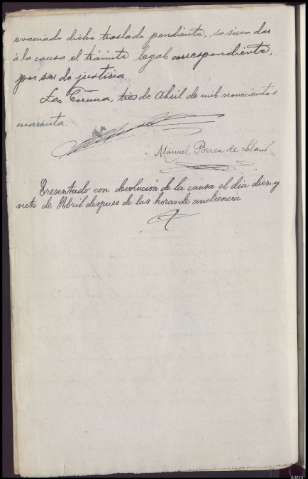 evacuado dicho traslado pendiente, se sirva dar
a la causa el trámite legal correspondiente,
por ser de justicia.
La Coruña, tres de Abril de mil novecientos
cuarenta.
Manuel Porca de
Presentado con devolución de la causa el día diez y
siete de Abril despues de las horas de audiencia